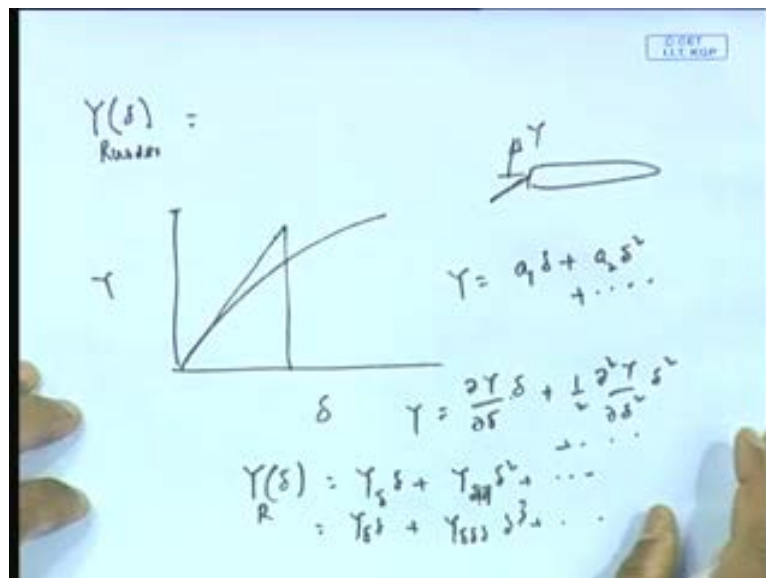 © CET
I.I.T. KGP
Y(δ) =
Rudder
Y
Y
Y = a₁ δ + a₂ δ²
+ ....
δ
Y = ∂Y/∂δ δ + 1/2 ∂²Y/∂δ² δ²
+ ....
Y(δ) = Y_δ δ + δ² + ...
R
= Y_δ δ + Y_δδδ δ³ + ...